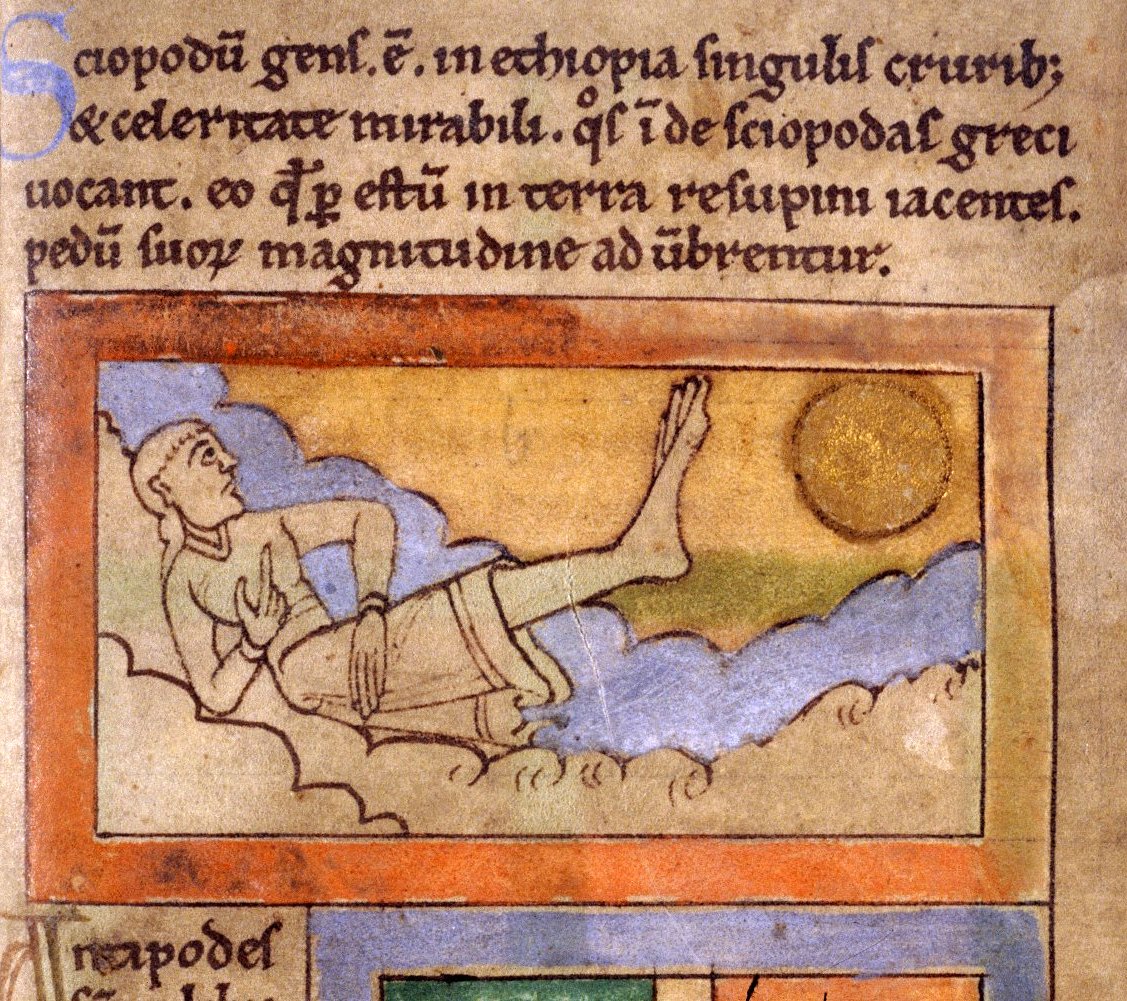 Sciopodū gens. ē. in ethiopia singulis crurib;
& celeritate mirabili. qͦs īde sciopodas greci
uocant. eo qđ ꝑ estū in terra resupini iacentes.
pedū suoꝝ magnitudine ad ūbrentur.
Antipodes